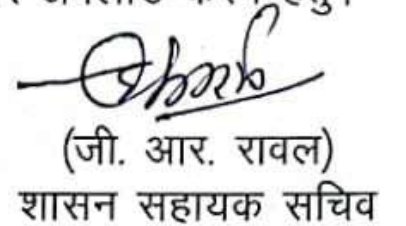 (जी. आर. रावल)
शासन सहायक सचिव